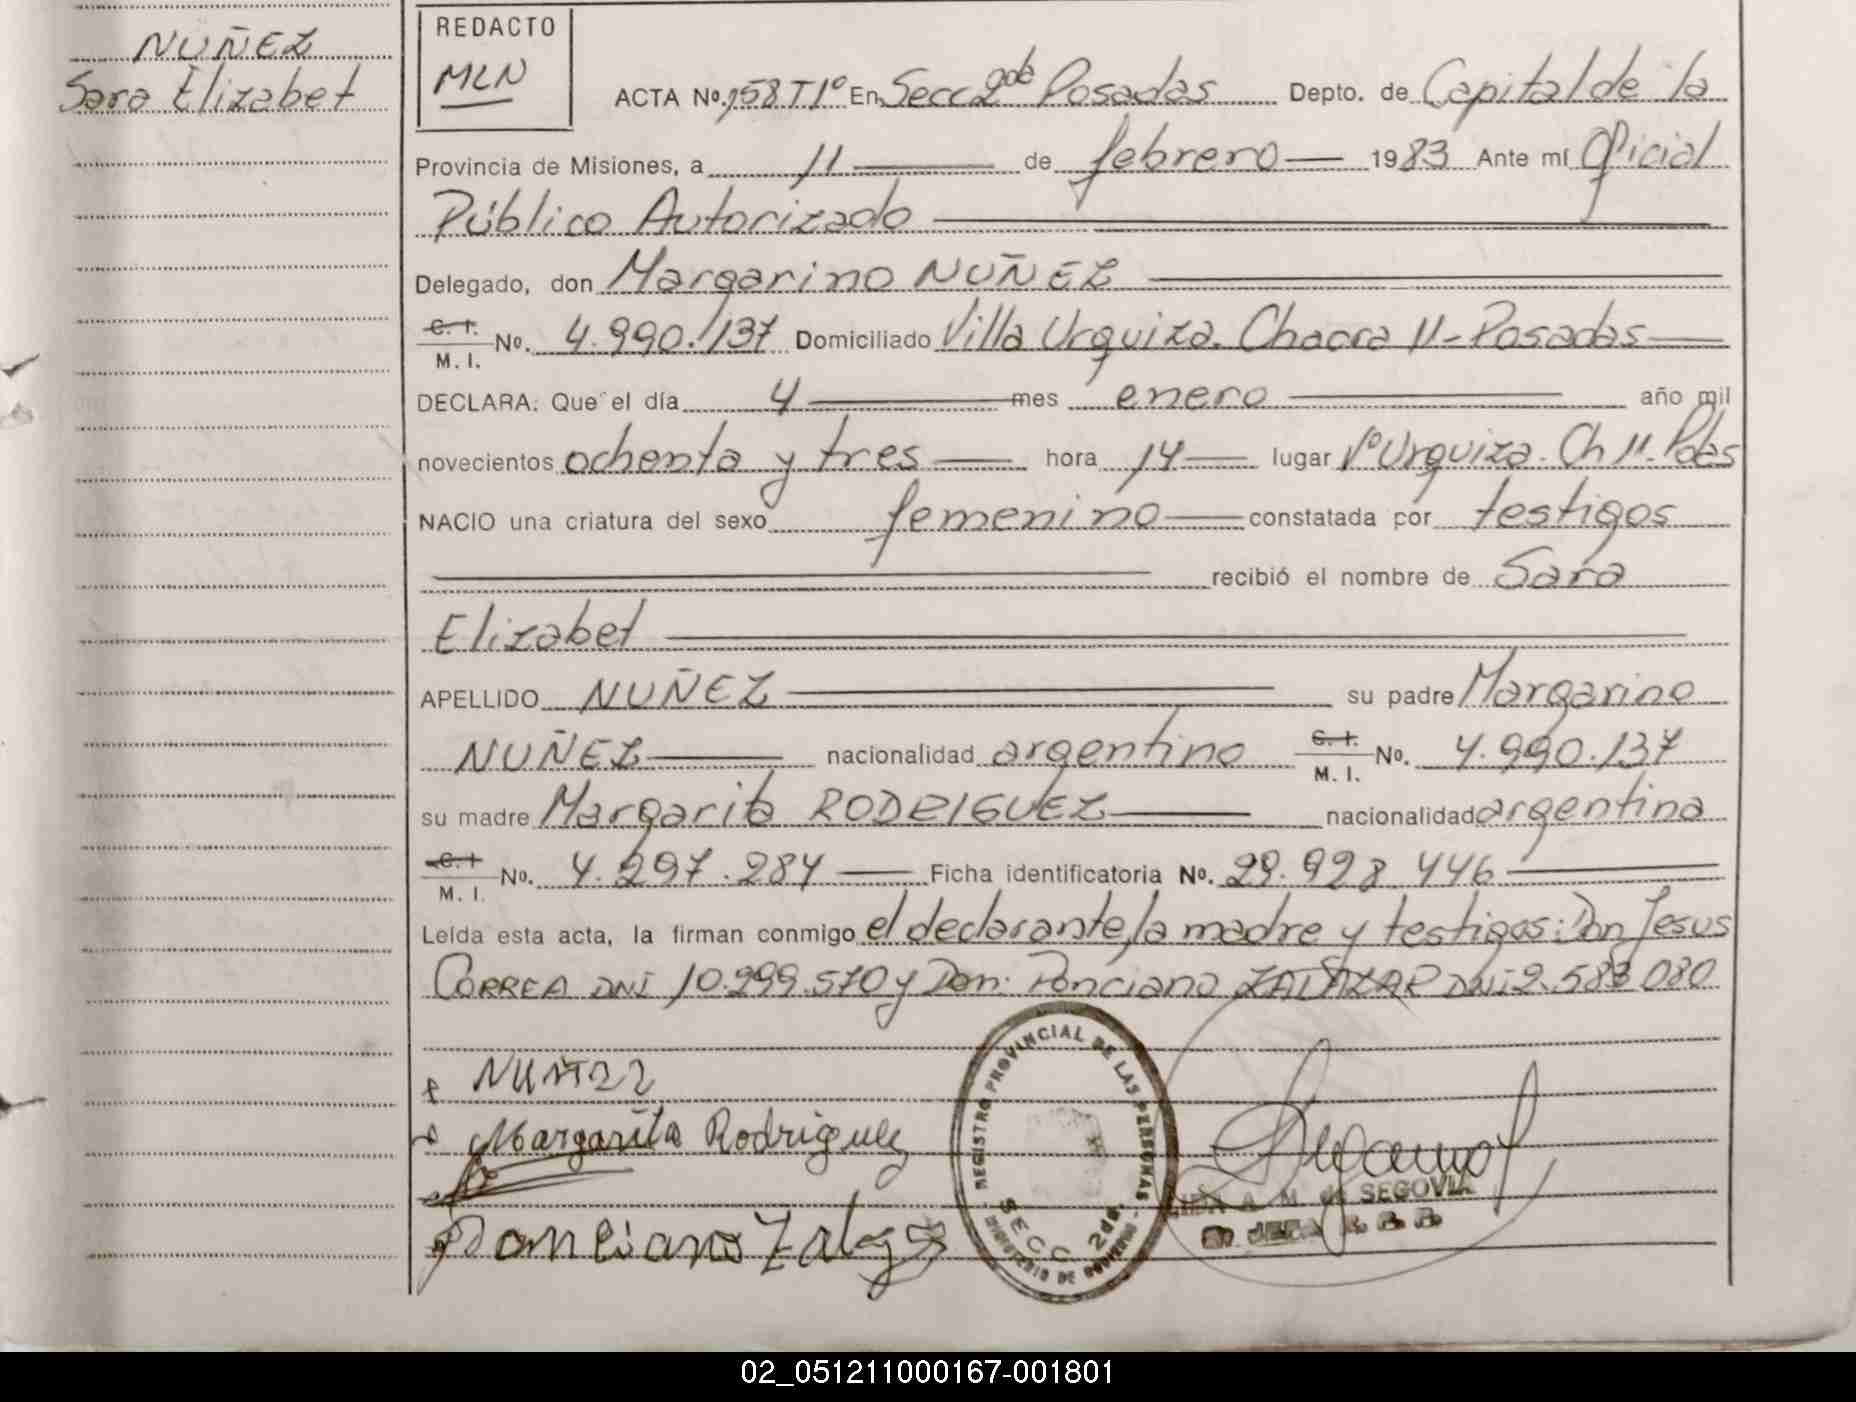 NUÑEZ
Sara Elizabet
REDACTO
MLN
ACTA Nº. 158 T1º En Secc 2da Posadas Depto. de Capital de la
Provincia de Misiones, a 11 de febrero 1983 Ante mí Oficial
Público Autorizado
Delegado, don Margarino NUÑEZ
C. I.
M. I. Nº. 4.990.137 Domiciliado Villa Urquiza. Chacra 11-Posadas
DECLARA: Que el día 4 mes enero año mil
novecientos ochenta y tres hora 14 lugar Vª Urquiza. Ch 11. Pdas
NACIO una criatura del sexo femenino constatada por testigos
recibió el nombre de Sara
Elizabet
APELLIDO NUÑEZ su padre Margarino
NUÑEZ nacionalidad argentino C. I. M. I. Nº. 4.990.137
su madre Margarita RODRIGUEZ nacionalidad argentina
C. I.
M. I. Nº. 4.297.284 Ficha identificatoria Nº. 29.928 446
Leída esta acta, la firman conmigo el declarante, la madre y testigos: Don Jesus
CORREA DNI 10.999.570 y Don: Ponciano ZALAZAR DNI 2.583 080
Margarita Rodriguez
Ponciano
REGISTRO PROVINCIAL DE LAS PERSONAS
SECC 2da.
MINISTERIO DE GOBIERNO
A. M. de SEGOVIA
02_051211000167-001801